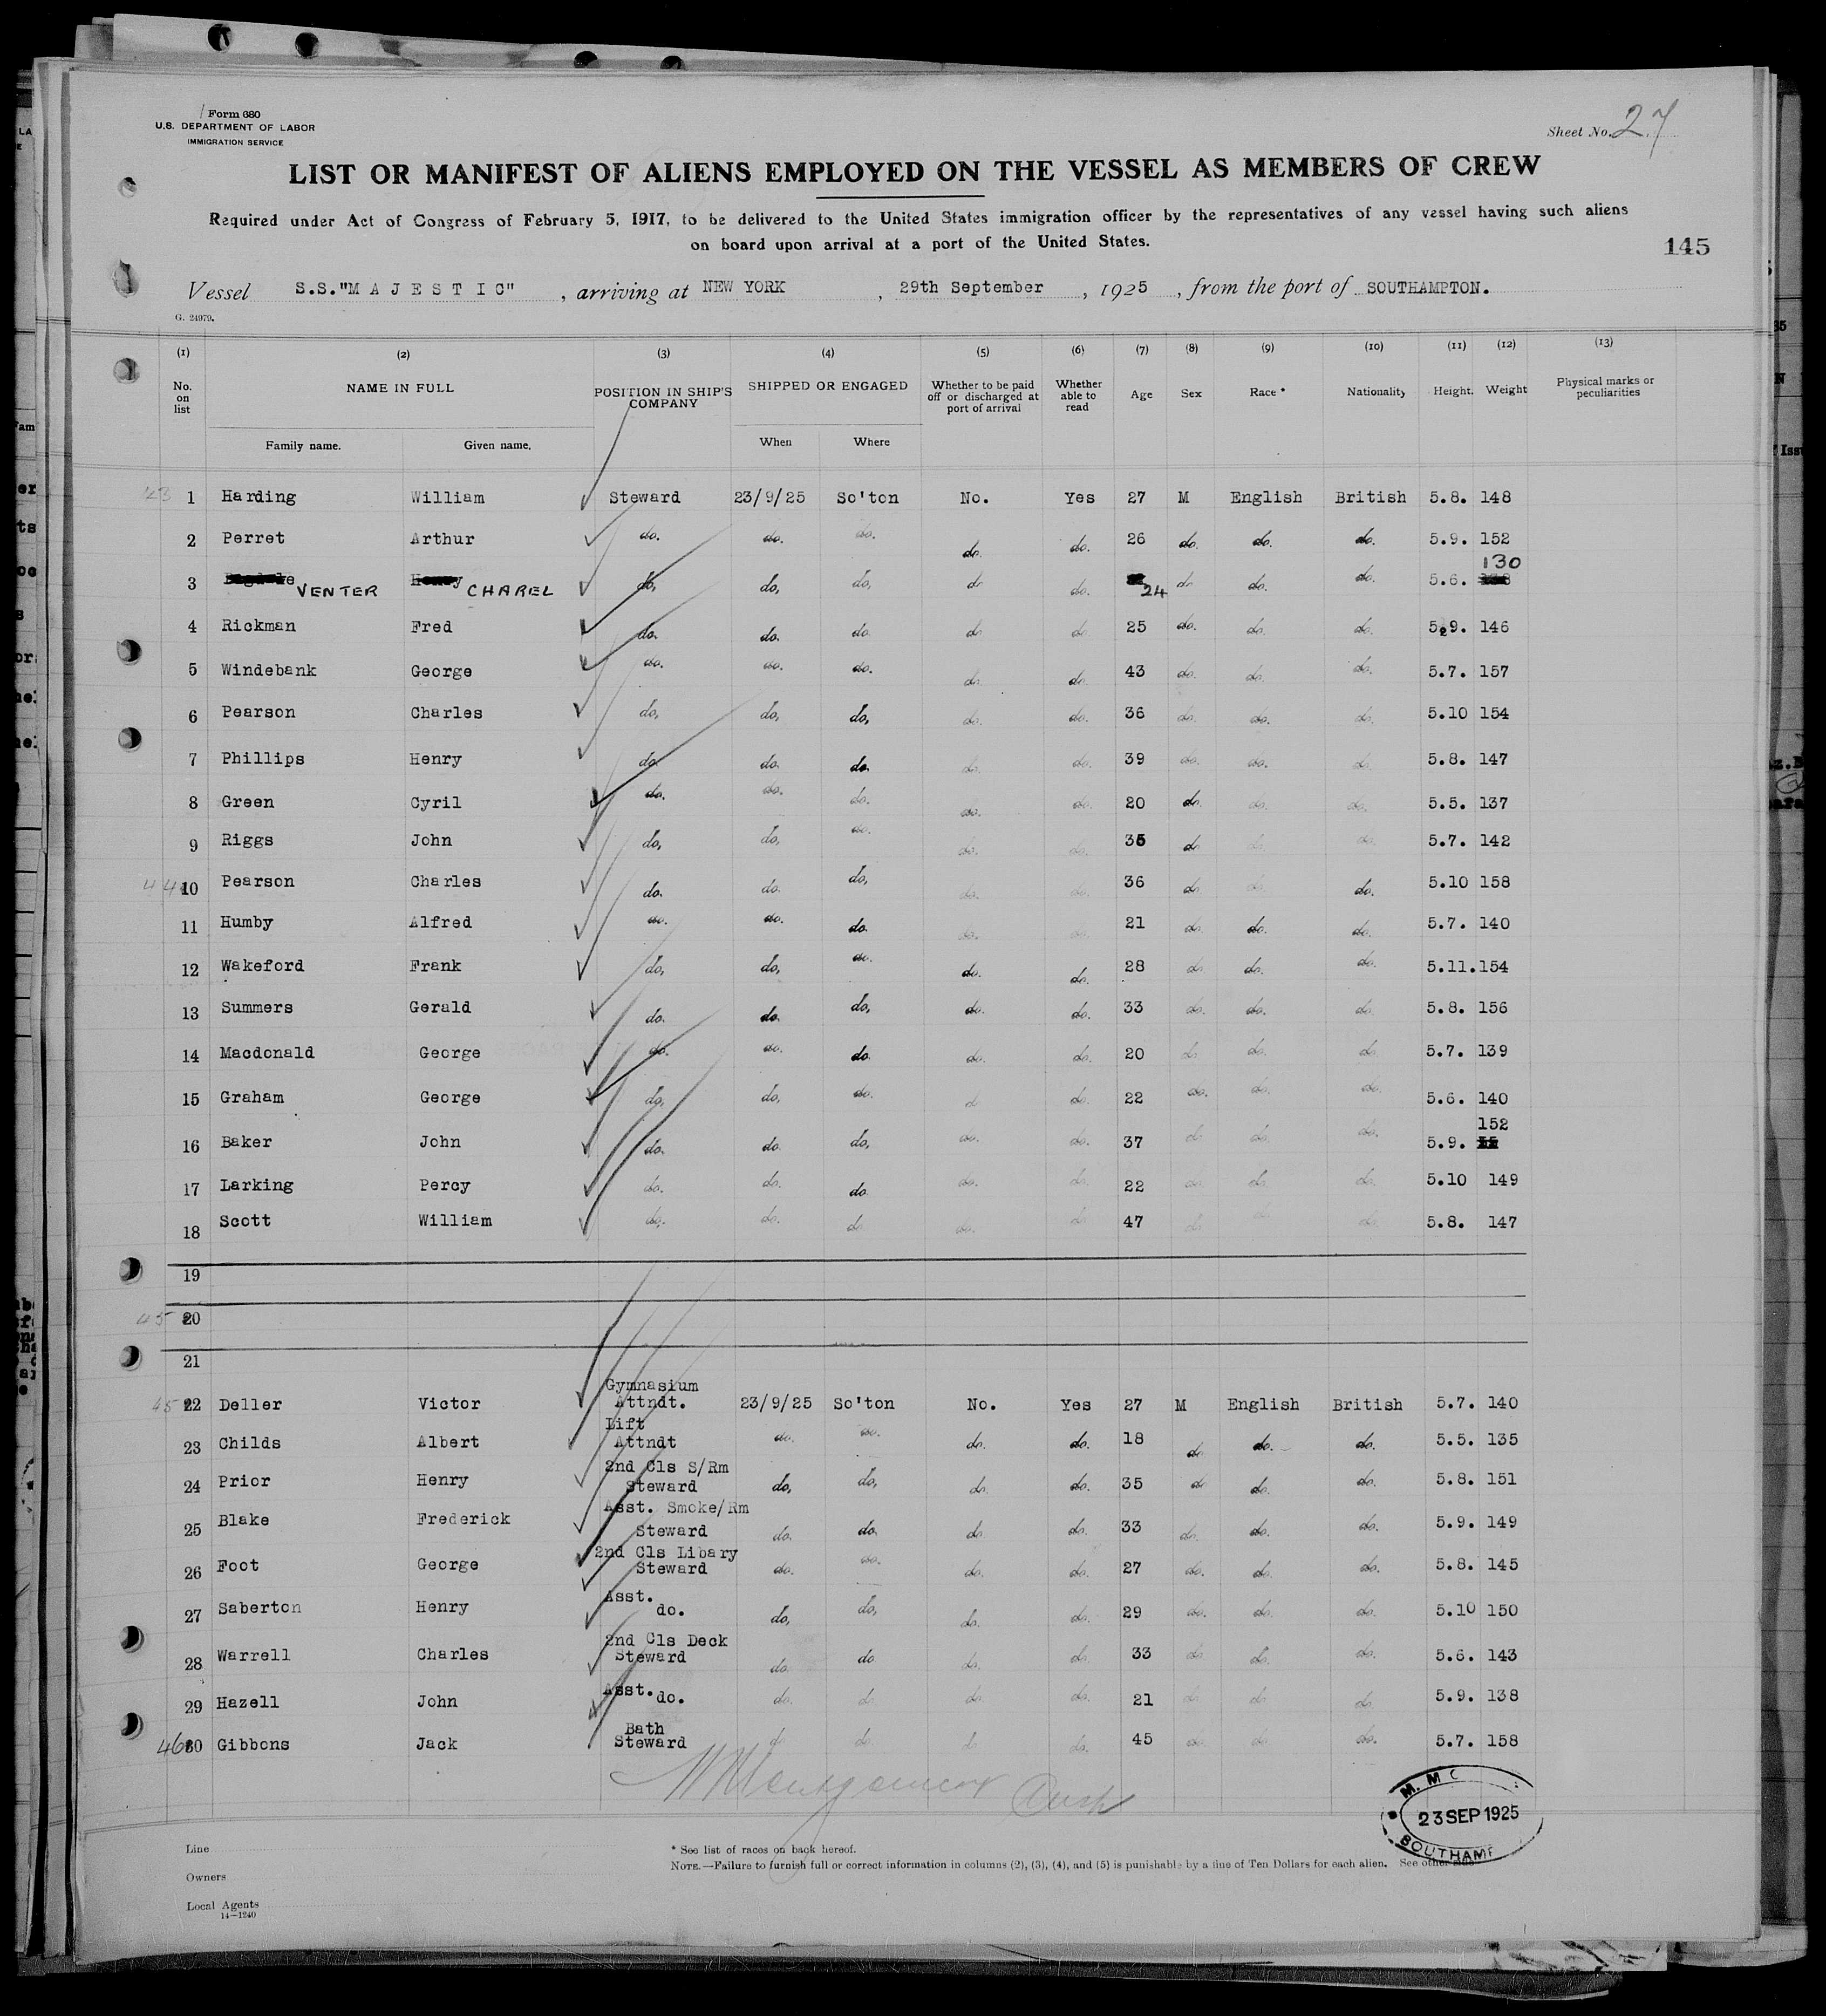 Form 680
U.S. DEPARTMENT OF LABOR
IMMIGRATION SERVICE
Sheet No. 27
LIST OR MANIFEST OF ALIENS EMPLOYED ON THE VESSEL AS MEMBERS OF CREW
Required under Act of Congress of February 5, 1917, to be delivered to the United States immigration officer by the representatives of any vessel having such aliens
on board upon arrival at a port of the United States.
145
Vessel S.S."MAJESTIC", arriving at NEW YORK, 29th September, 1925, from the port of SOUTHAMPTON.
G. 24979.
(1) (2) (3) (4) (5) (6) (7) (8) (9) (10) (11) (12) (13)
No. on list NAME IN FULL POSITION IN SHIP'S COMPANY SHIPPED OR ENGAGED Whether to be paid off or discharged at port of arrival Whether able to read Age Sex Race * Nationality Height. Weight Physical marks or peculiarities
Family name. Given name. When Where
1 Harding William Steward 23/9/25 So'ton No. Yes 27 M English British 5.8. 148
2 Perret Arthur do. do. do. do. do. 26 do. do. do. 5.9. 152
3 VENTER CHAREL do. do. do. do. do. 24 do. do. do. 5.6. 130
4 Rickman Fred do. do. do. do. do. 25 do. do. do. 5.9. 146
5 Windebank George do. do. do. do. do. 43 do. do. do. 5.7. 157
6 Pearson Charles do. do. do. do. do. 36 do. do. do. 5.10 154
7 Phillips Henry do. do. do. do. do. 39 do. do. do. 5.8. 147
8 Green Cyril do. do. do. do. do. 20 do. do. do. 5.5. 137
9 Riggs John do. do. do. do. do. 36 do. do. do. 5.7. 142
10 Pearson Charles do. do. do. do. do. 36 do. do. do. 5.10 158
11 Humby Alfred do. do. do. do. do. 21 do. do. do. 5.7. 140
12 Wakeford Frank do. do. do. do. do. 28 do. do. do. 5.11. 154
13 Summers Gerald do. do. do. do. do. 33 do. do. do. 5.8. 156
14 Macdonald George do. do. do. do. do. 20 do. do. do. 5.7. 139
15 Graham George do. do. do. do. do. 22 do. do. do. 5.6. 140
16 Baker John do. do. do. do. do. 37 do. do. do. 5.9. 152
17 Larking Percy do. do. do. do. do. 22 do. do. do. 5.10 149
18 Scott William do. do. do. do. do. 47 do. do. do. 5.8. 147
19
20
21
22 Deller Victor Gymnasium Attndt. 23/9/25 So'ton No. Yes 27 M English British 5.7. 140
23 Childs Albert Lift Attndt do. do. do. do. 18 do. do. do. 5.5. 135
24 Prior Henry 2nd Cls S/Rm Steward do. do. do. do. 35 do. do. do. 5.8. 151
25 Blake Frederick Asst. Smoke/Rm Steward do. do. do. do. 33 do. do. do. 5.9. 149
26 Foot George 2nd Cls Libary Steward do. do. do. do. 27 do. do. do. 5.8. 145
27 Saberton Henry Asst. do. do. do. do. do. 29 do. do. do. 5.10 150
28 Warrell Charles 2nd Cls Deck Steward do. do. do. do. 33 do. do. do. 5.6. 143
29 Hazell John Asst. do. do. do. do. do. 21 do. do. do. 5.9. 138
30 Gibbons Jack Bath Steward do. do. do. do. 45 do. do. do. 5.7. 158
M. M C
23 SEP 1925
SOUTHAM
Line
Owners
Local Agents
14—1240
* See list of races on back hereof.
NOTE.—Failure to furnish full or correct information in columns (2), (3), (4), and (5) is punishable by a fine of Ten Dollars for each alien. See other side